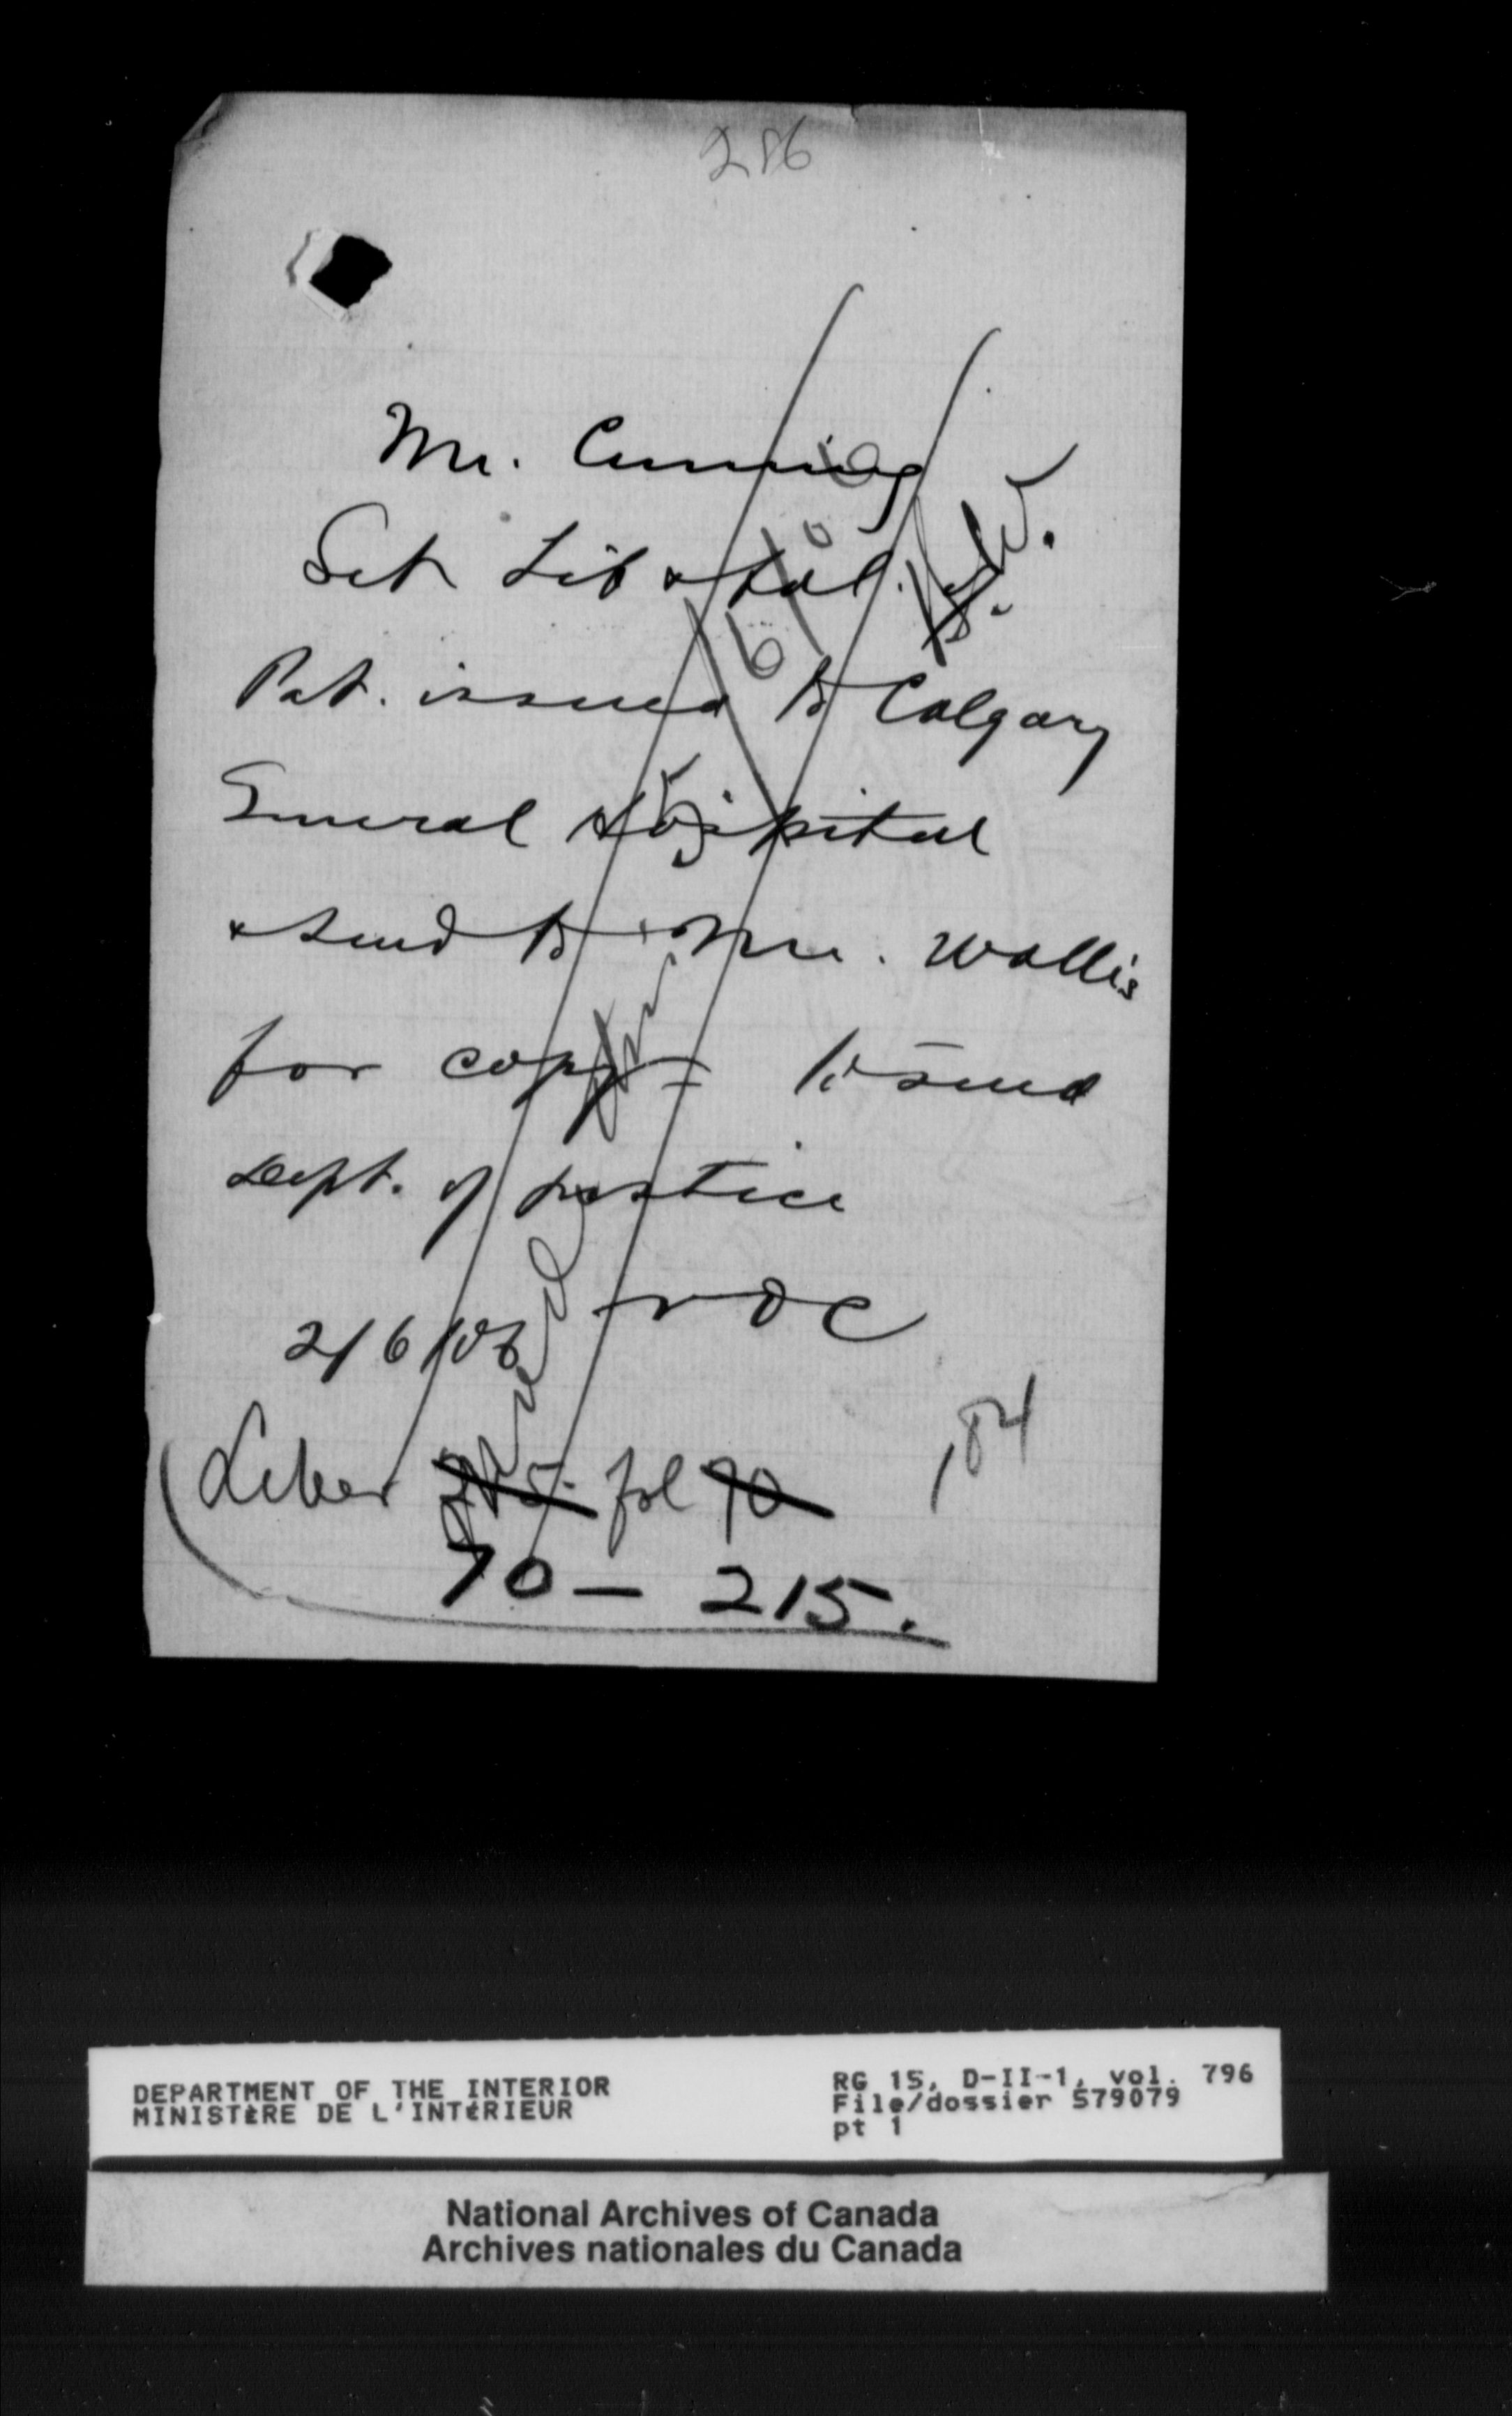 286
Mr. Cumming
Get Lib & fol.
Pat. issued to Calgary
General Hospital
& send to Mr. Wallis
for copy - to send
Dept. of Justice
NOC
2/6/06
Liber 215 fol 70
184
70 - 215.
DEPARTMENT OF THE INTERIOR
MINISTÈRE DE L'INTÉRIEUR
RG 15, D-II-1, vol. 796
File/dossier 579079
pt 1
National Archives of Canada
Archives nationales du Canada